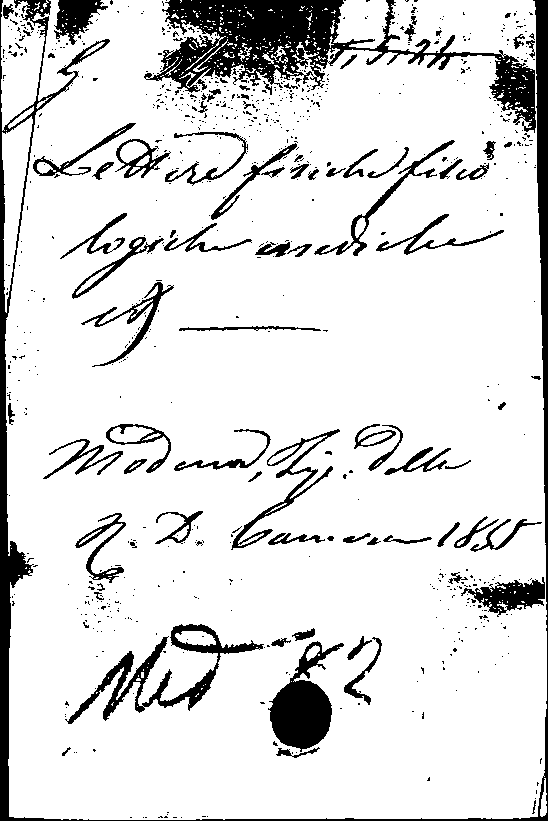 G.
1,5,24
Lettere fisiche fisio
logiche mediche
Modena, Tip. della
R. D. Camera 1858
Med 82